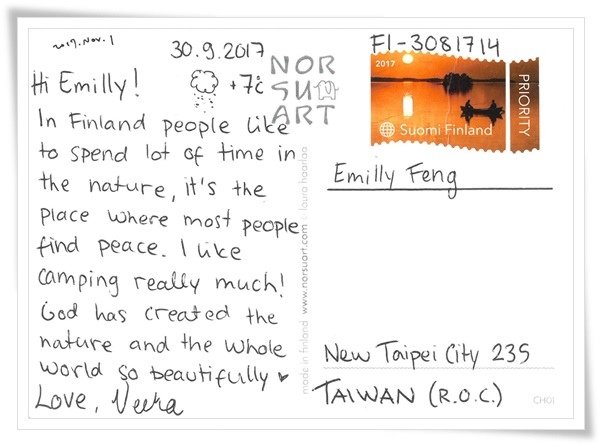 2017.Nov.1
30.9.2017
+7°C
Hi Emilly!
In Finland people like
to spend lot of time in
the nature, it's the
place where most people
find peace. I like
camping really much!
God has created the
nature and the whole
world so beautifully ♥
Love, Veera
NOR
SU
ART
made in finland www.norsuart.com © laura haarlaa
FI-3081714
2017
Suomi Finland
PRIORITY
Emilly Feng
New Taipei City 235
TAIWAN (R.O.C.)
CH01